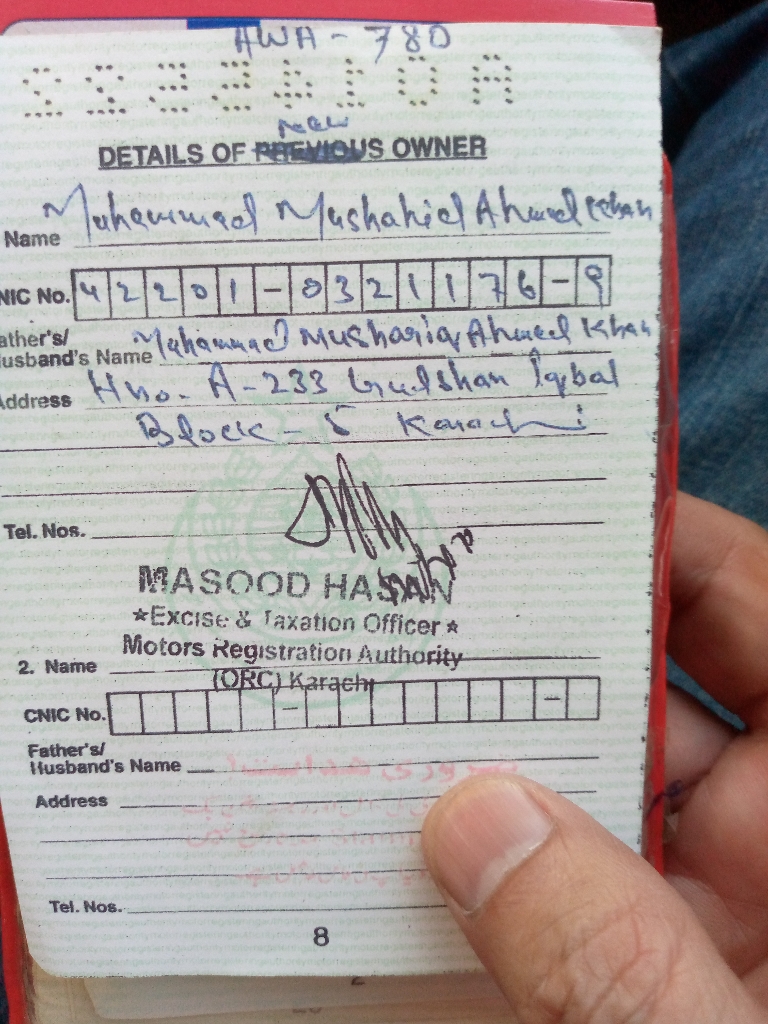 AWA - 780
New
DETAILS OF PREVIOUS OWNER
Name Muhammad Mushahid Ahmed Khan
NIC No. 42201-0321176-9
ather's/
usband's Name Muhammad Mushariq Ahmed Khan
Address Hno. A-233 Gulshan Iqbal
Block - 5 Karachi
Tel. Nos.
MASOOD HASAN
★Excise & Taxation Officer★
Motors Registration Authority
2. Name
(ORC) Karachi
CNIC No. - -
Father's/
Husband's Name
Address
Tel. Nos.
8